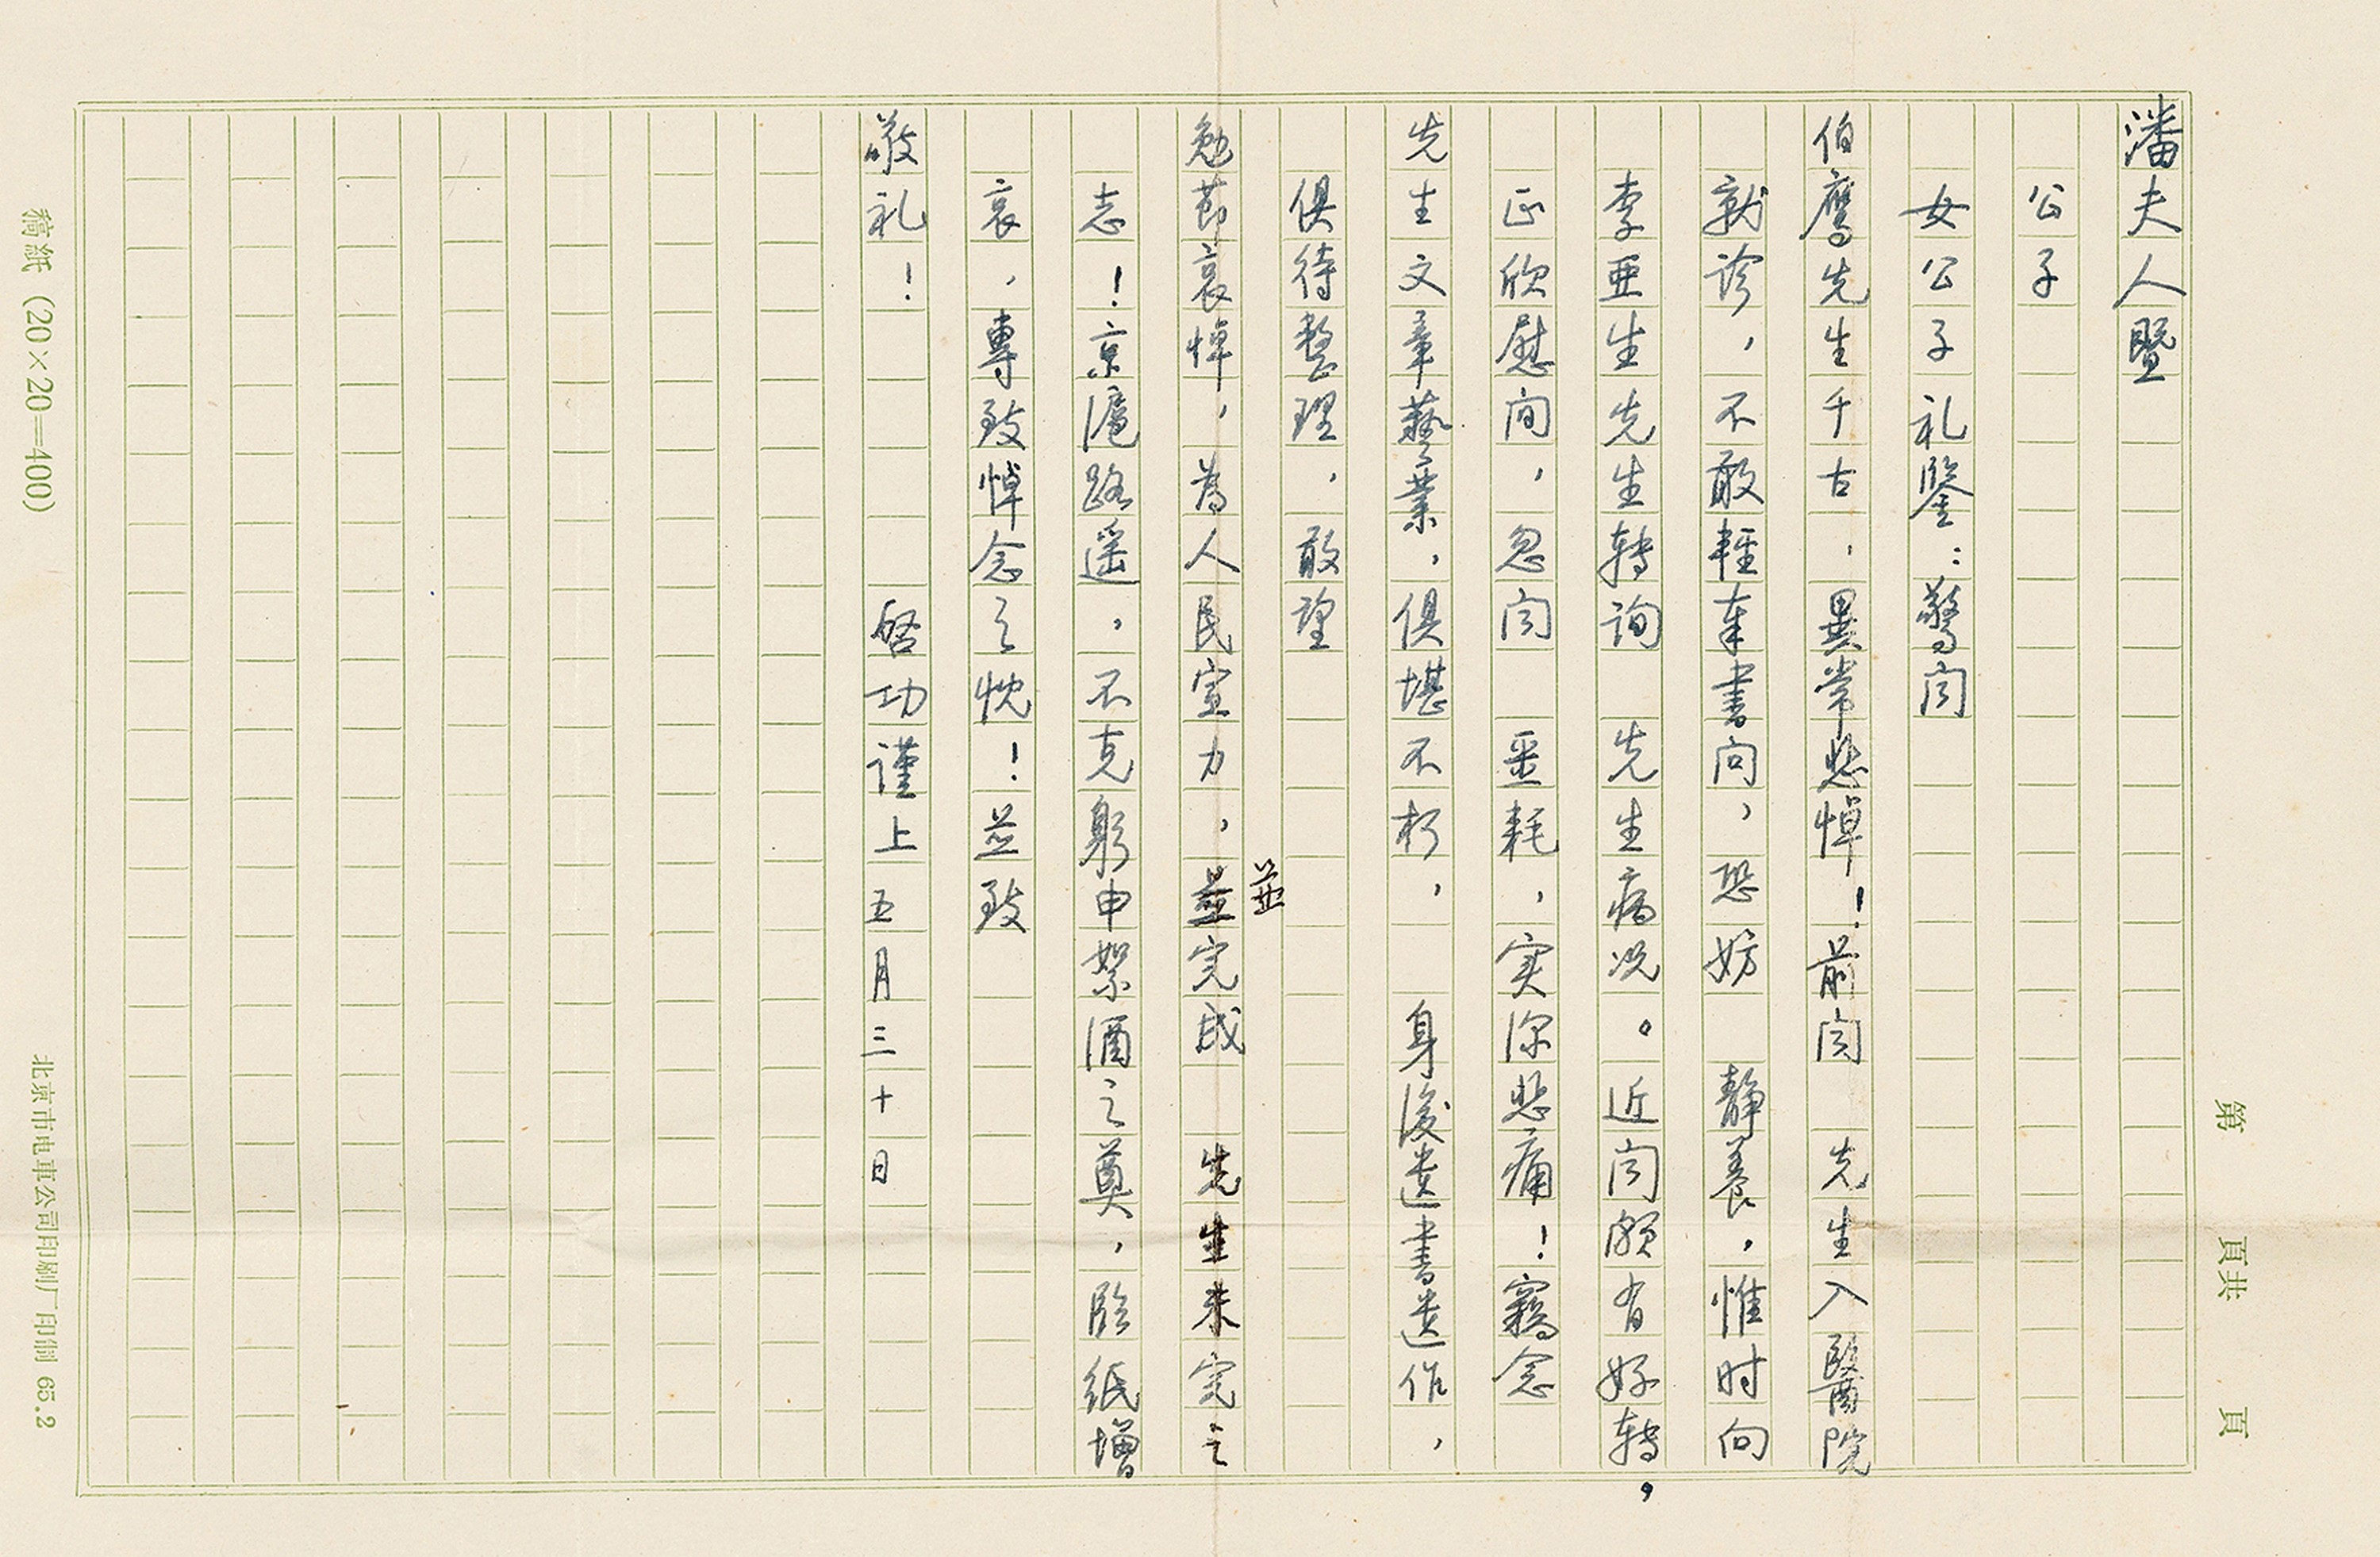 第 頁共 頁
潘夫人暨
公子
女公子礼鑒：驚闻
伯鹰先生千古，異常悲悼！前闻 先生入醫院
就诊，不敢輕率書问，恐妨 静养，惟时向
李亜生先生转询 先生病况。近闻颇有好转，
正欣慰间，忽闻 噩耗，实深悲痛！竊念
先生文章藝業，俱堪不朽， 身後遗書遗作，
俱待整理，敢望
勉莭哀悼，為人民宣力，並完成 先生未完之
並
志！京滬路遥，不克躬申絮酒之奠，臨纸增
哀，專致悼念之忱！並致
敬礼！ 啓功謹上 五月三十日
稿紙（20×20=400）
北京市电車公司印刷厂印制 65.2